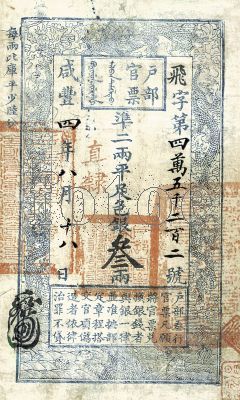 戶部
官票
飛字第四萬五千二百二號
準二兩平足色銀叁兩
直隸
咸豐四年八月十八日
每兩比庫平少陸分
戶部奏行
官票凡願
將官票兌
換銀錢者
與銀一律
並准按部
定章程搭
交官項偽
造者依律
治罪不貸